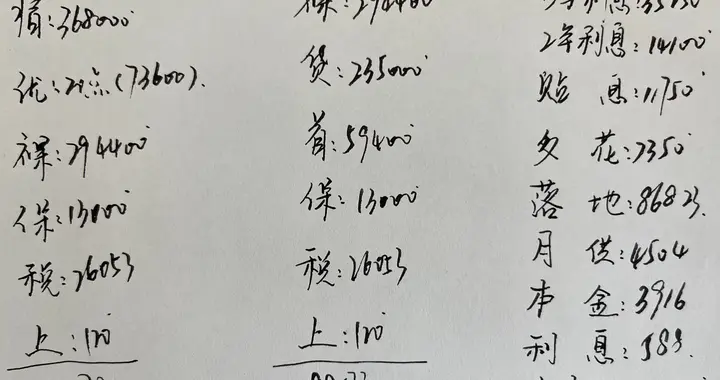 指:368000
优:20点(73600).
裸:294400
保:13000
税:26053
上:120
裸:294400
贷:235000
首:59400
保:13000
税:26053
上:120
年利息:35250
2年利息:14100
贴 息:11750
多 花:2350
落 地:86823.
月 供:4504
本 金:3916
利 息:588.